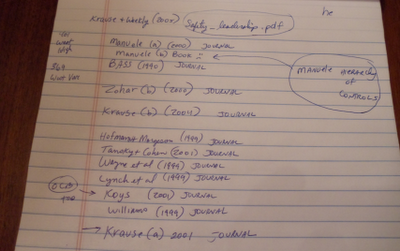 he
Krause + Weekly (2005) Safety_leadership_pdf
Manuele (a) (2000) JOURNAL
Manuele (b) BOOK =
BASS (1990) JOURNAL
MANUELE HIERARCHY
OF
CONTROLS
Zohar (b) (2002) JOURNAL
Krause (b) (2001) JOURNAL
Hofmann + Morgeson (1999) JOURNAL
(2001) JOURNAL
Wayne et al (1999) JOURNAL
Lynch et al (1999) JOURNAL
Koys (2001) JOURNAL
Williams (1999) JOURNAL
Krause (a) 2001 JOURNAL